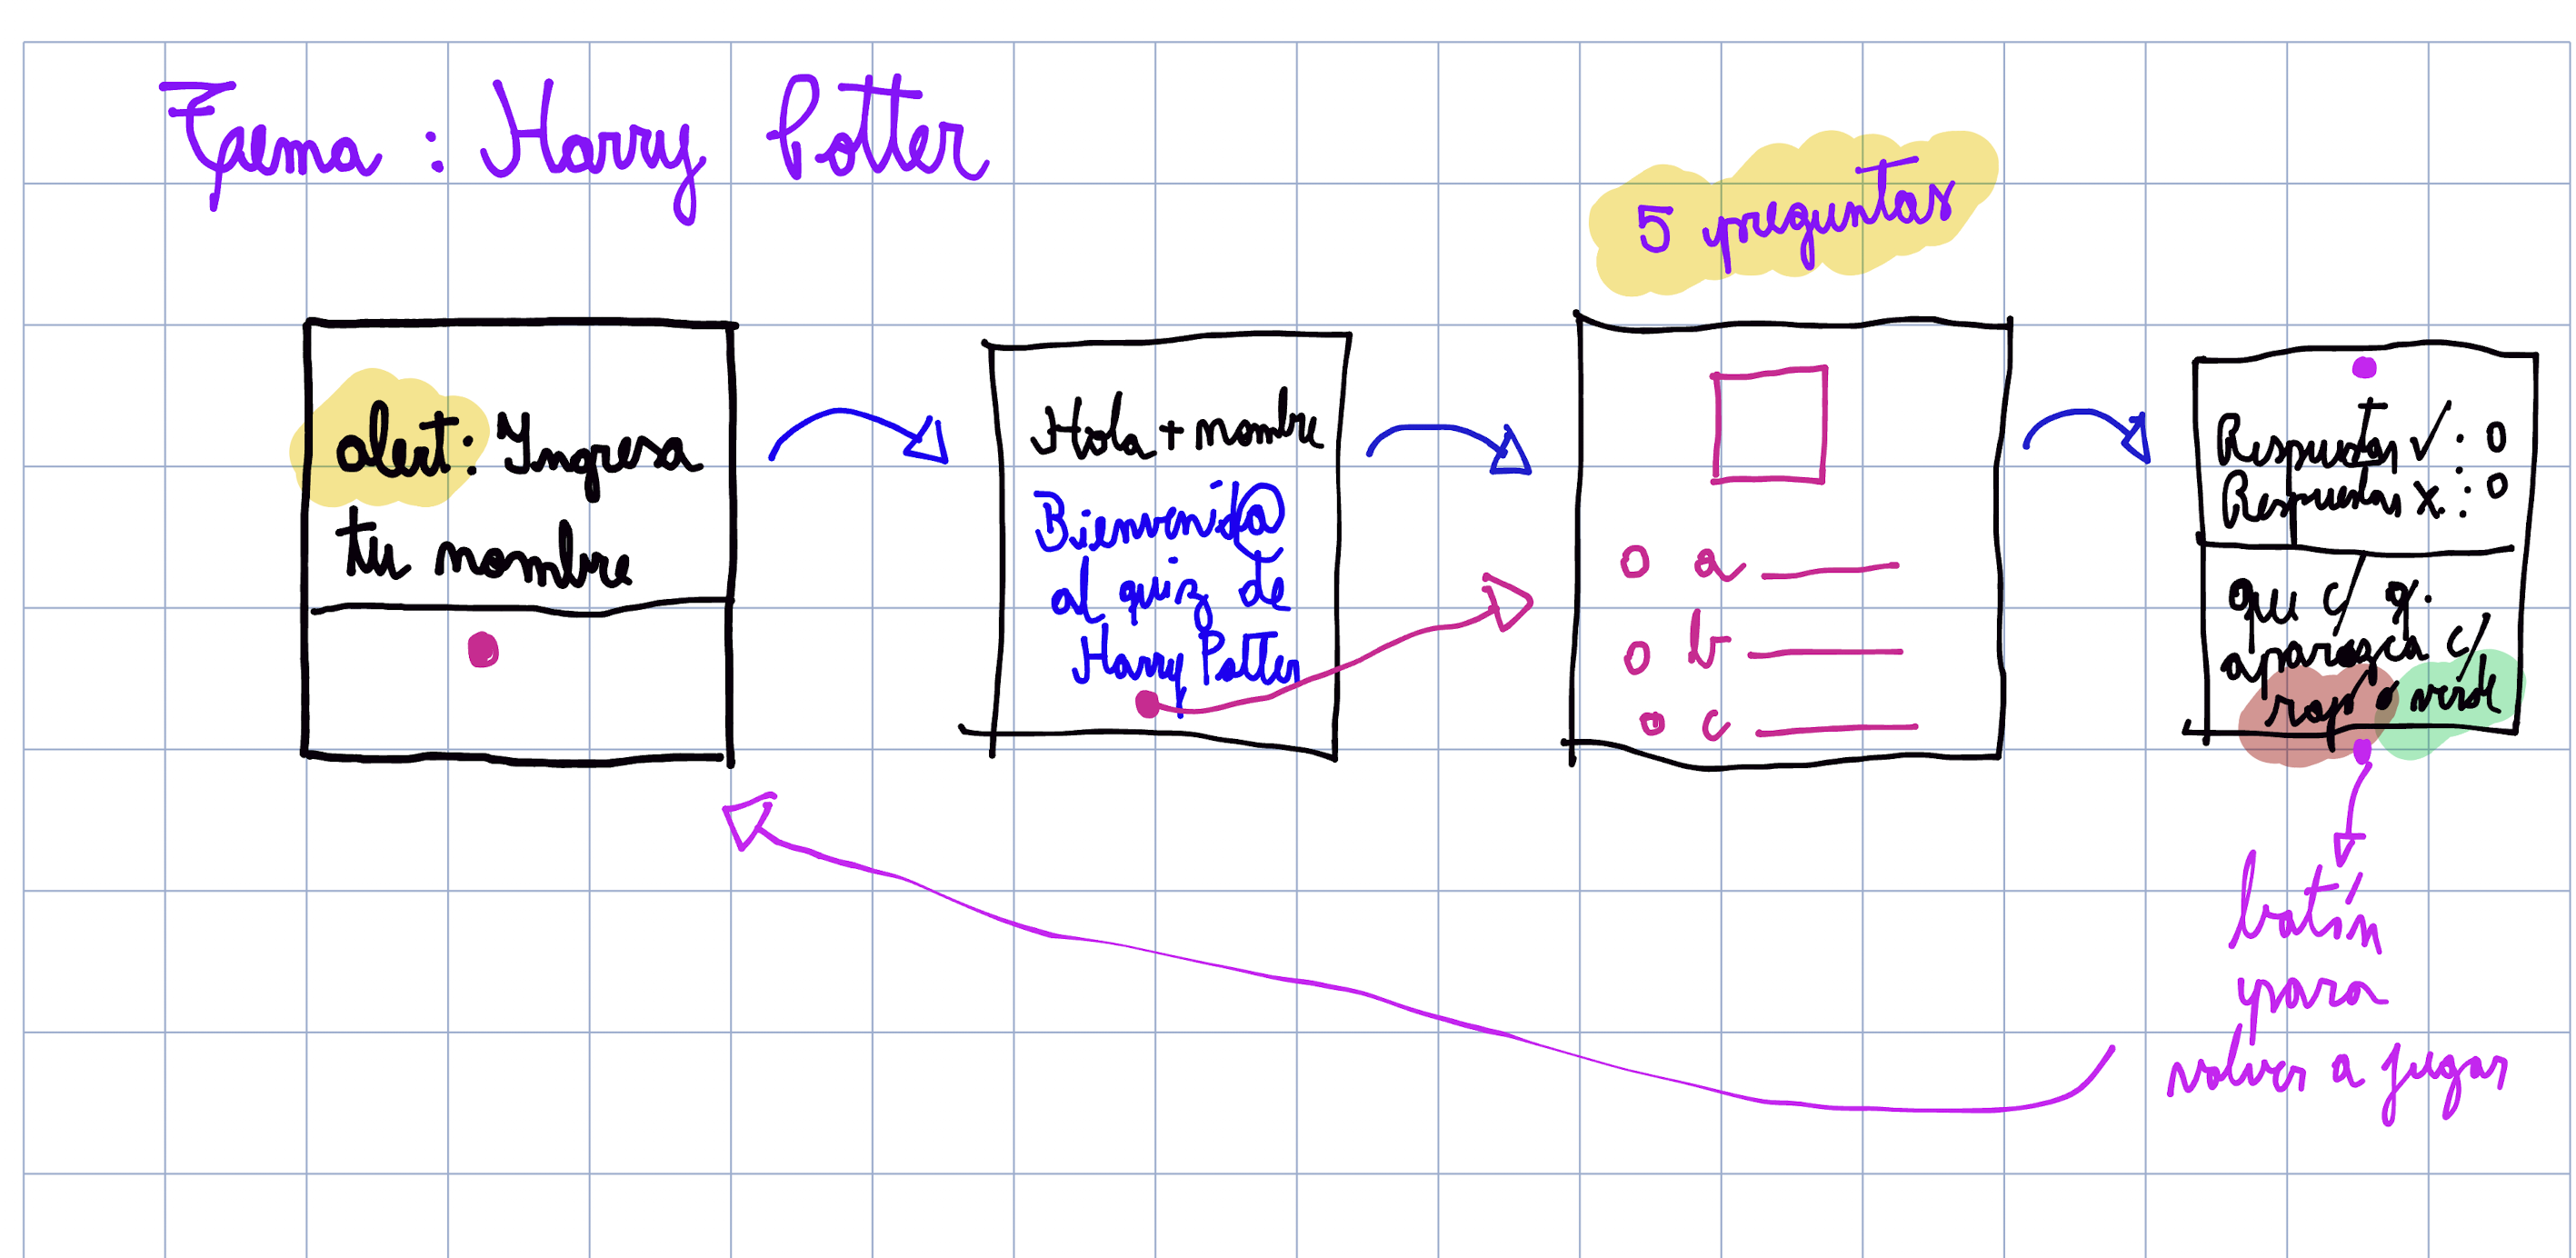 Tema : Harry Potter
5 preguntas
alert: Ingresa
tu nombre
Hola + nombre
Bienvenid@
al quiz de
Harry Potter
a
b
c
Respuestas ✓ : 0
Respuestas x : 0
que c/ q.
aparezca c/
rojo o verde
botón
para
volver a jugar